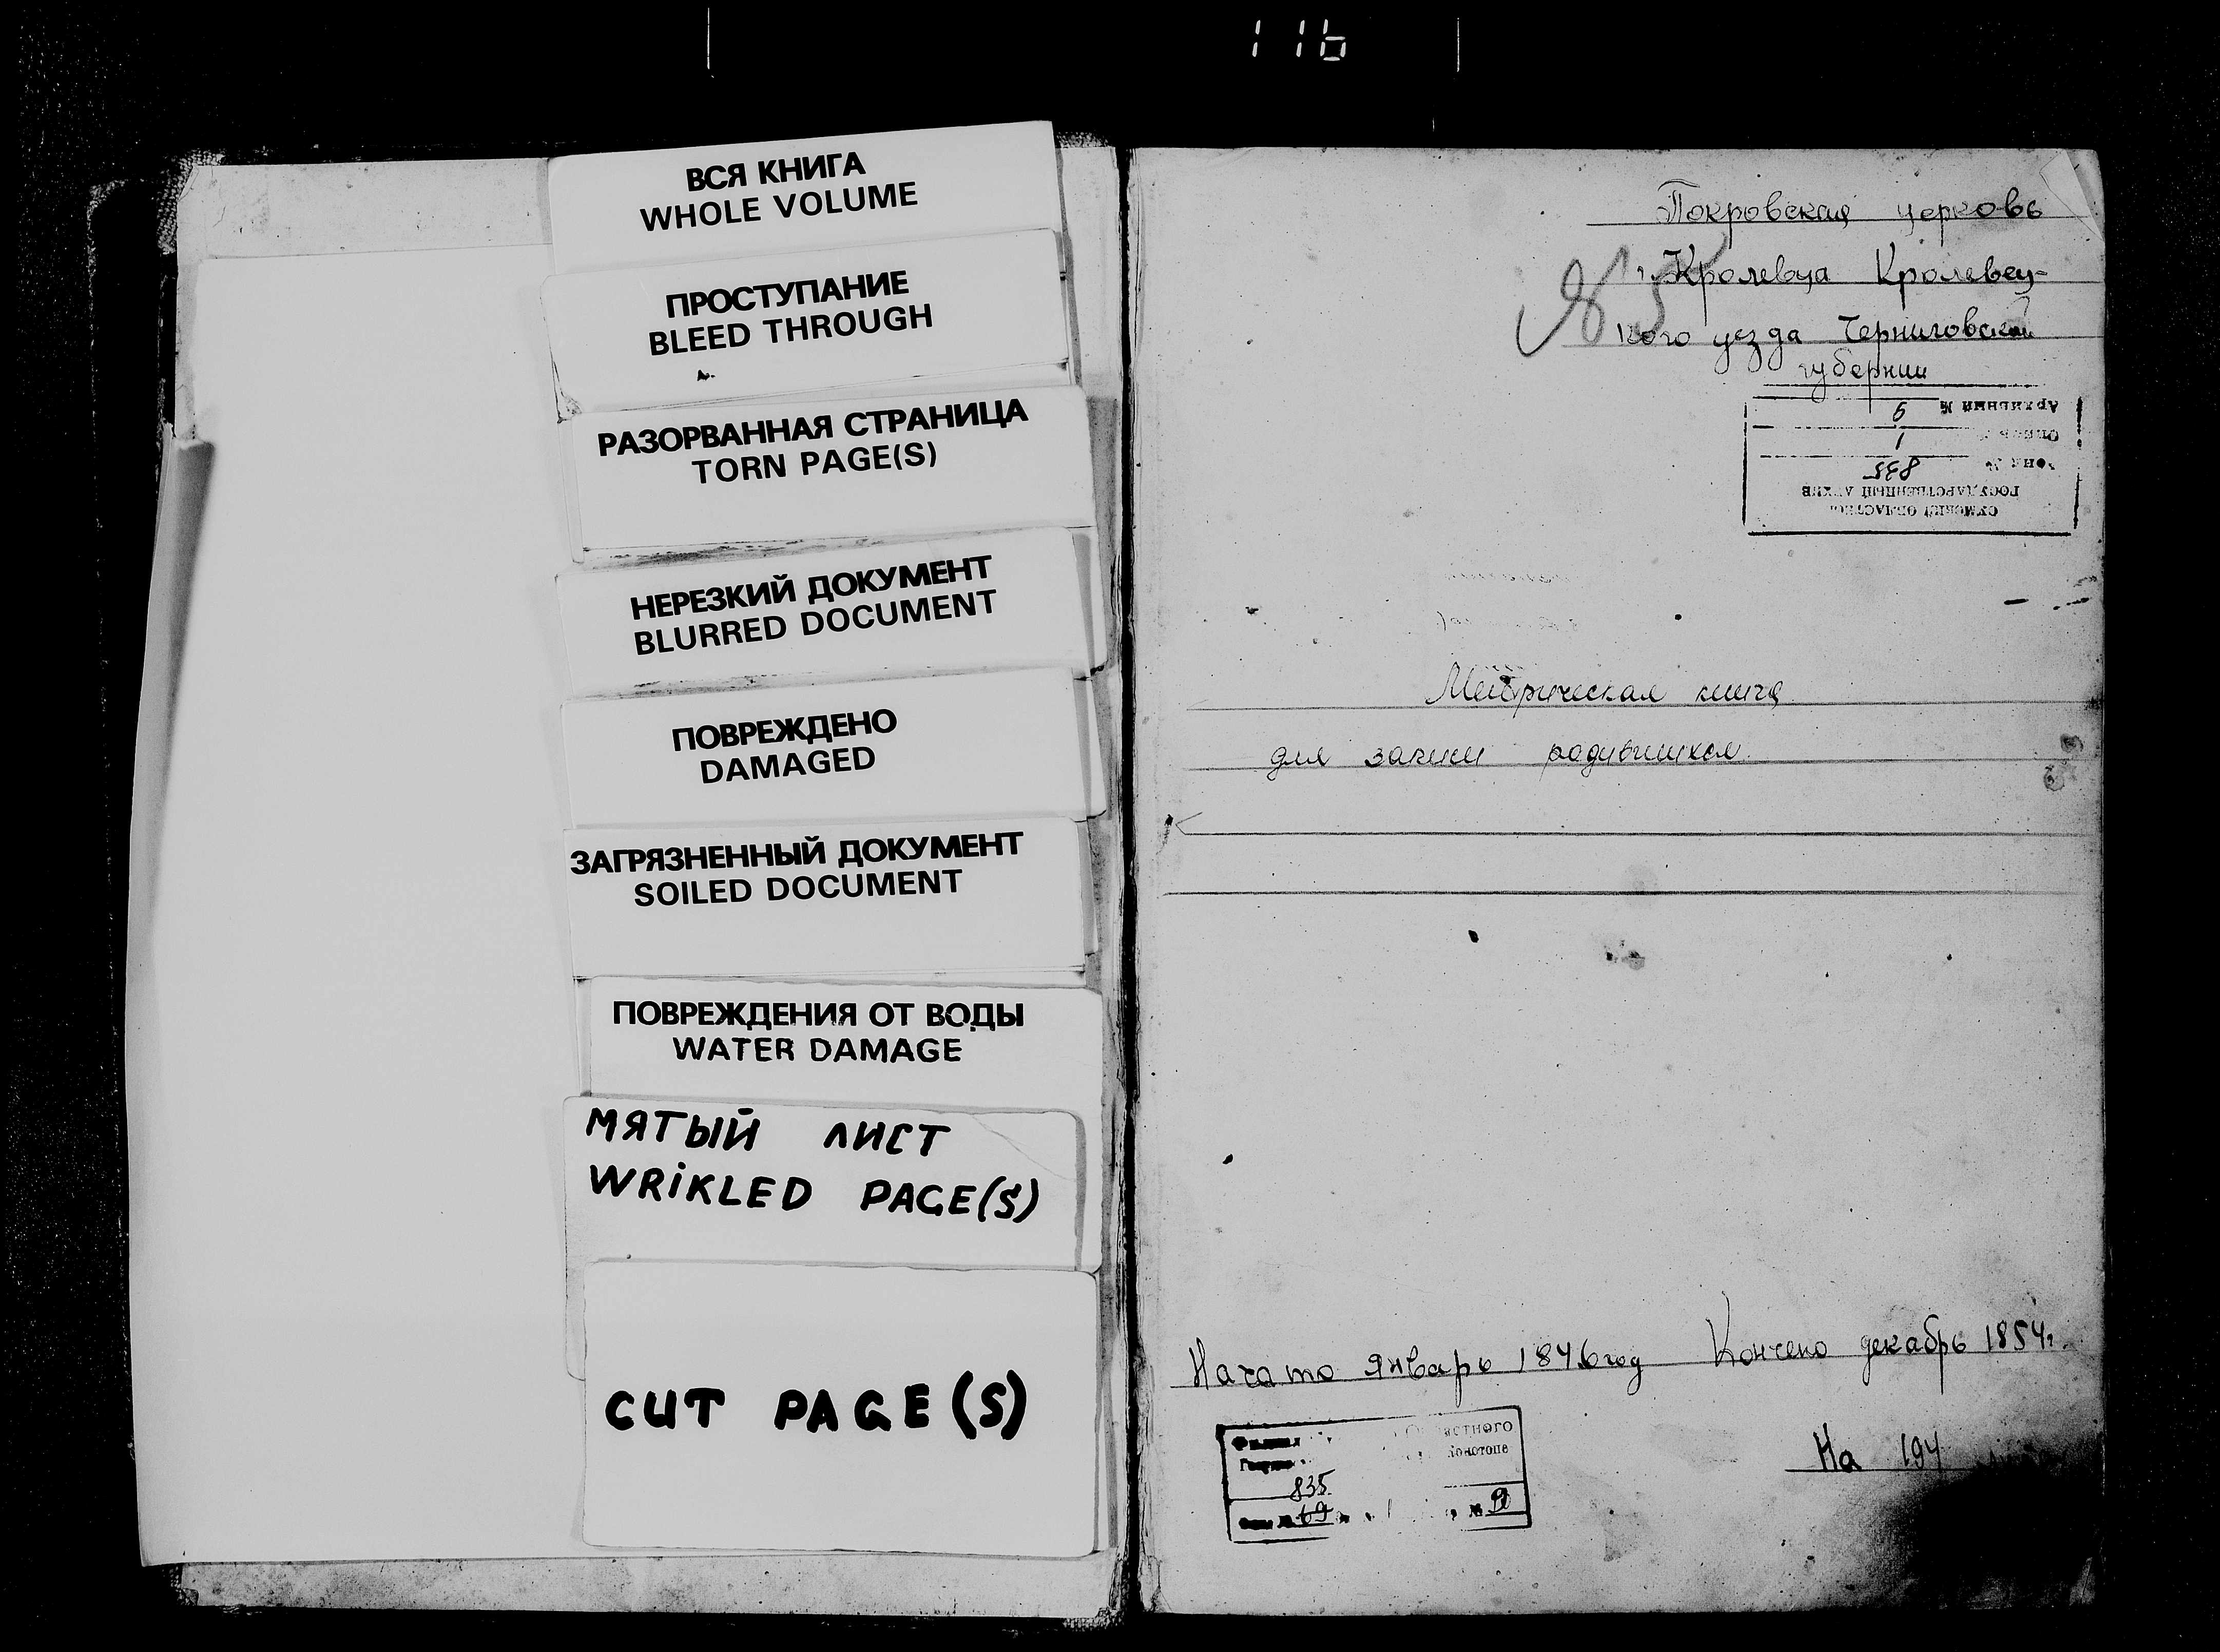 116
ВСЯ КНИГА
WHOLE VOLUME
ПРОСТУПАНИЕ
BLEED THROUGH
РАЗОРВАННАЯ СТРАНИЦА
TORN PAGE(S)
НЕРЕЗКИЙ ДОКУМЕНТ
BLURRED DOCUMENT
ПОВРЕЖДЕНО
DAMAGED
ЗАГРЯЗНЕННЫЙ ДОКУМЕНТ
SOILED DOCUMENT
ПОВРЕЖДЕНИЯ ОТ ВОДЫ
WATER DAMAGE
МЯТЫЙ ЛИСТ
WRiKLED PAGE(S)
CUT PAGE(S)
Покровская церковь
г. Кролевца Кролевец-
кого уезда Черниговской
губернии
№ 5
ГОСУДАРСТВЕННЫЙ АРХИВ
835
1
Архивный №
Метрическая книга
для записи родившихся
Начато январь 1846 год Кончено декабрь 1854 г.
На 194
835
69 № 9